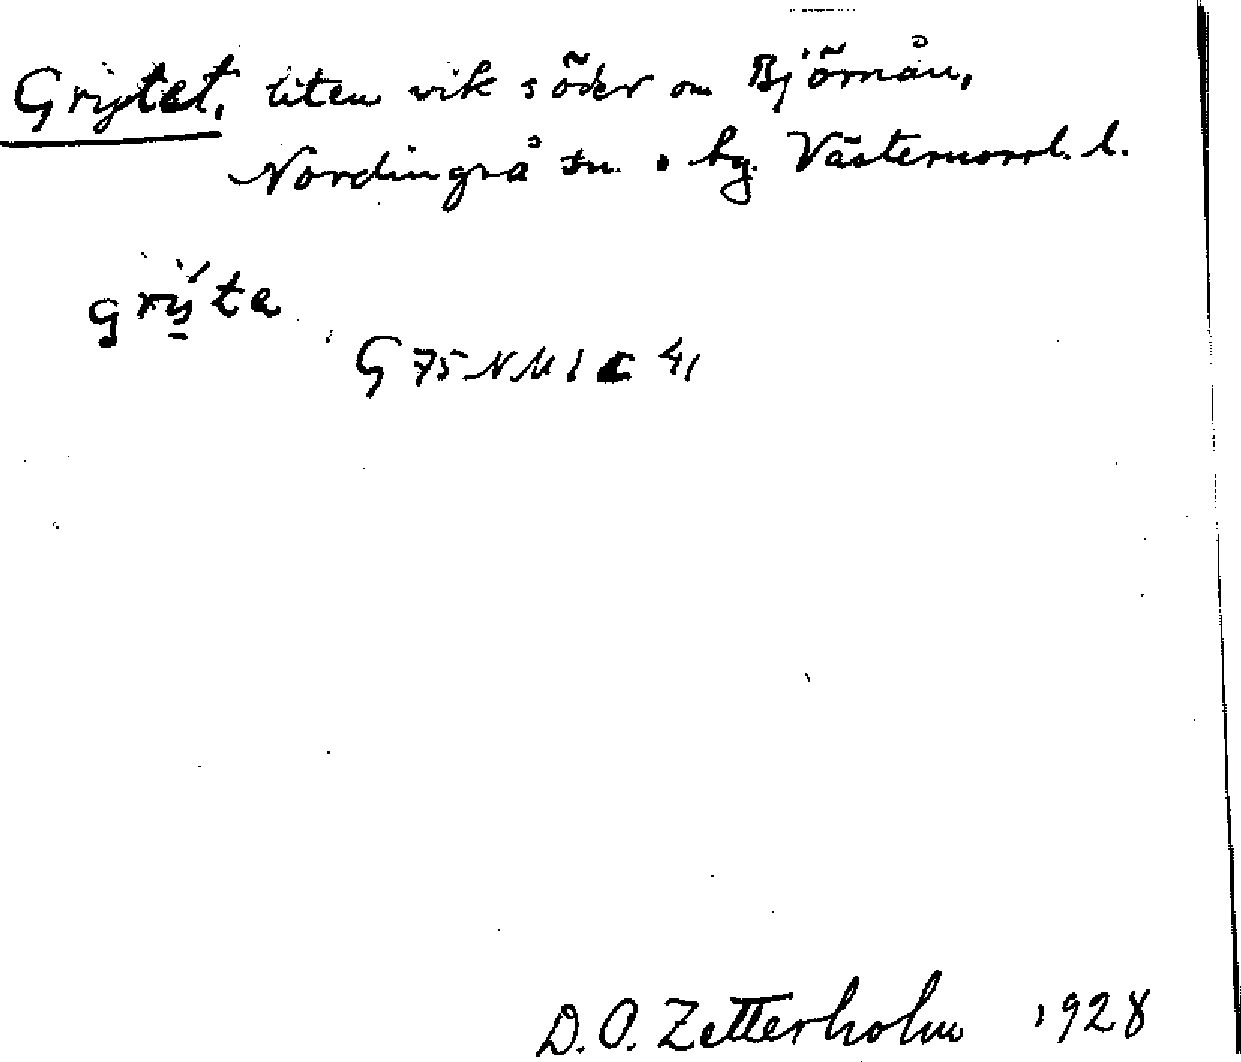 Grytet, liten vik söder om Björnån,
Nordingrå sn. o. hg. Västernorrl. l.
grý̱ta
G 75 NM 1 c 41
D. O. Zetterholm 1928